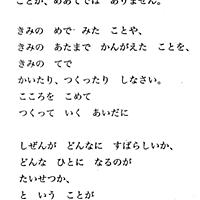 ことが、めあてでは　ありません。
きみの　めで　みた　ことや、
きみの　あたまで　かんがえた　ことを、
きみの　てで
かいたり、つくったり　しなさい。
こころを　こめて
つくって　いく　あいだに
しぜんが　どんなに　すばらしいか、
どんな　ひとに　なるのが
たいせつか、
と　いう　ことが